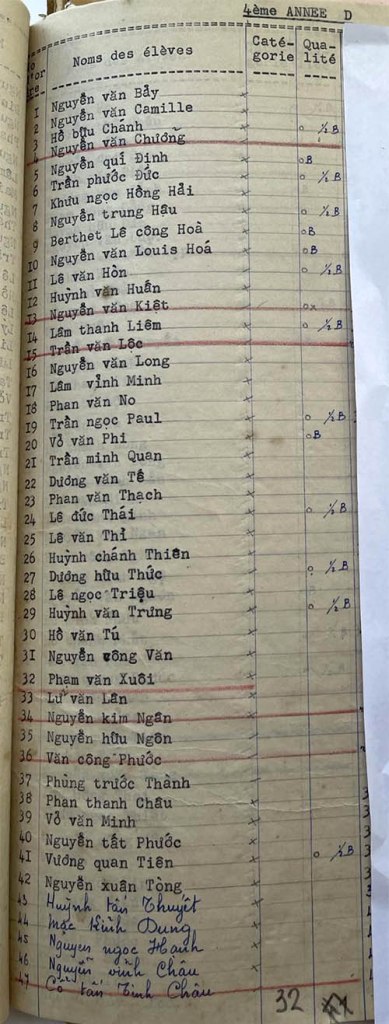 4ème ANNEE D
Noms des élèves Caté-gorie Qua-lité
1 Nguyễn văn Bảy x
2 Nguyễn văn Camille x
3 Hồ bửu Chánh x o ½ B
4 Nguyễn văn Chưởng
5 Nguyễn quí Định x oB
6 Trần phước Đức x o ½ B
7 Khưu ngọc Hồng Hải x
8 Nguyễn trung Hậu x o ½ B
9 Berthet Lê công Hoà x oB
10 Nguyễn văn Louis Hoá x oB
11 Lê văn Hòn x o ½ B
12 Huỳnh văn Huấn x
13 Nguyễn văn Kiệt x ox
14 Lâm thanh Liêm x o ½ B
15 Trần văn Lộc x
16 Nguyễn văn Long x
17 Lâm vỉnh Minh x
18 Phan văn No x
19 Trần ngọc Paul x o ½ B
20 Vỏ văn Phi x oB
21 Trần minh Quan x
22 Dương văn Tế x
23 Phan văn Thạch x
24 Lê đức Thái x o ½ B
25 Lê văn Thỉ x
26 Huỳnh chánh Thiên x
27 Dương hữu Thức x o ½ B
28 Lê ngọc Triệu x o ½ B
29 Huỳnh văn Trưng x o ½ B
30 Hồ văn Tú x
31 Nguyễn công Văn x
32 Phạm văn Xuôi
33 Lư văn Lân x
34 Nguyễn kim Ngân x
35 Nguyễn hữu Ngôn x
36 Văn công Phước
37 Phùng trước Thành
38 Phan thanh Châu x
39 Vỏ văn Minh x
40 Nguyễn tất Phước x
41 Vương quan Tiên x o ½ B
42 Nguyễn xuân Tòng x
43 Huỳnh tấn Thuyết x
44 Mạc Kính Dung x
45 Nguyen ngọc Hanh x
46 Nguyễn vĩnh Châu x
47 Cổ tấn Tinh Châu x
32